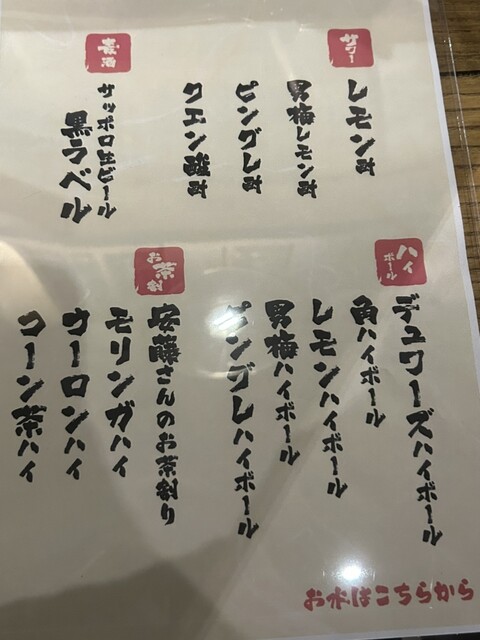 サワー
レモン酎
男梅レモン酎
ピングレ酎
クエン酸酎
麦酒
サッポロ生ビール
黒ラベル
ハイボール
デュワーズハイボール
角ハイボール
レモンハイボール
男梅ハイボール
ピングレハイボール
お茶割
安藤さんのお茶割り
モリンガハイ
ウーロンハイ
コーン茶ハイ
お水はこちらから